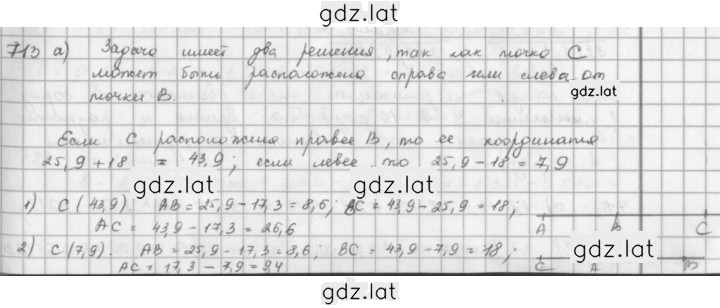 gdz.lat
713 а) Задача имеет два решения, так как точка С
может быть расположена справа или слева от
gdz.lat
точки В.
Если С расположена правее В, то ее координата
25,9 + 18 = 43,9; если левее то 25,9 - 18 = 7,9
gdz.lat gdz.lat
1) С (43,9). АВ = 25,9 - 17,3 = 8,6; ВС = 43,9 - 25,9 = 18;
АС = 43,9 - 17,3 = 26,6
А В С
gdz.lat gdz.lat
2) С (7,9). АВ = 25,9 - 17,3 = 8,6; ВС = 43,9 - 7,9 = 18;
АС = 17,3 - 7,9 = 9,4
С А В
gdz.lat